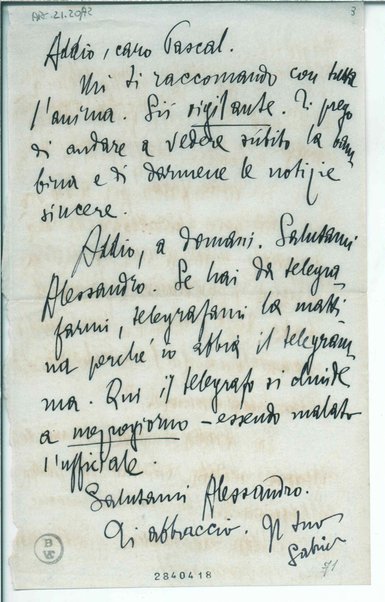 ARC.21.20/12
3
Addio, caro Pascal.
Mi ti raccomando con tutta
l'anima. Sii vigilante. Ti prego
di andare a vedere súbito la bam-
bina e di darmene le notizie
sincere.
Addio, a domani. Salutami
Alessandro. Se hai da telegra-
farmi, telegrafami la matti-
na perché io abbia il telegram-
ma. Qui il telegrafo si chiude
a mezzogiorno – essendo malato
l'ufficiale.
Salutami Alessandro.
Ti abbraccio. Il tuo
Gabri
71
2840418